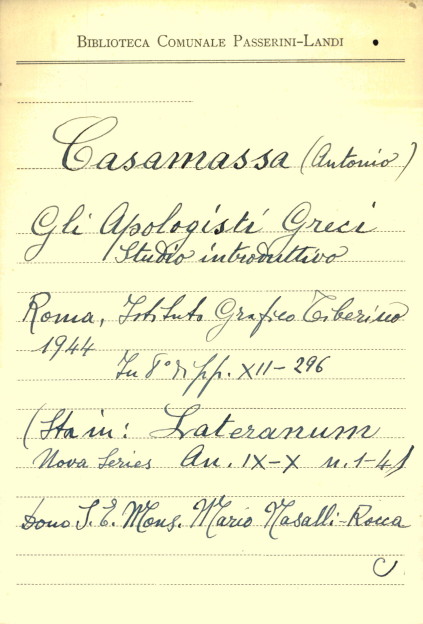 BIBLIOTECA COMUNALE PASSERINI-LANDI
Casamassa (Antonio)
Gli Apologisti Greci
Studio introduttivo
Roma, Istituto Grafico Tiberino
1944
In 8° di pp. XII-296
(Sta in: Lateranum
Nova Series An. IX-X n. 1-4)
Dono S. E. Mons. Mario Nasalli-Rocca